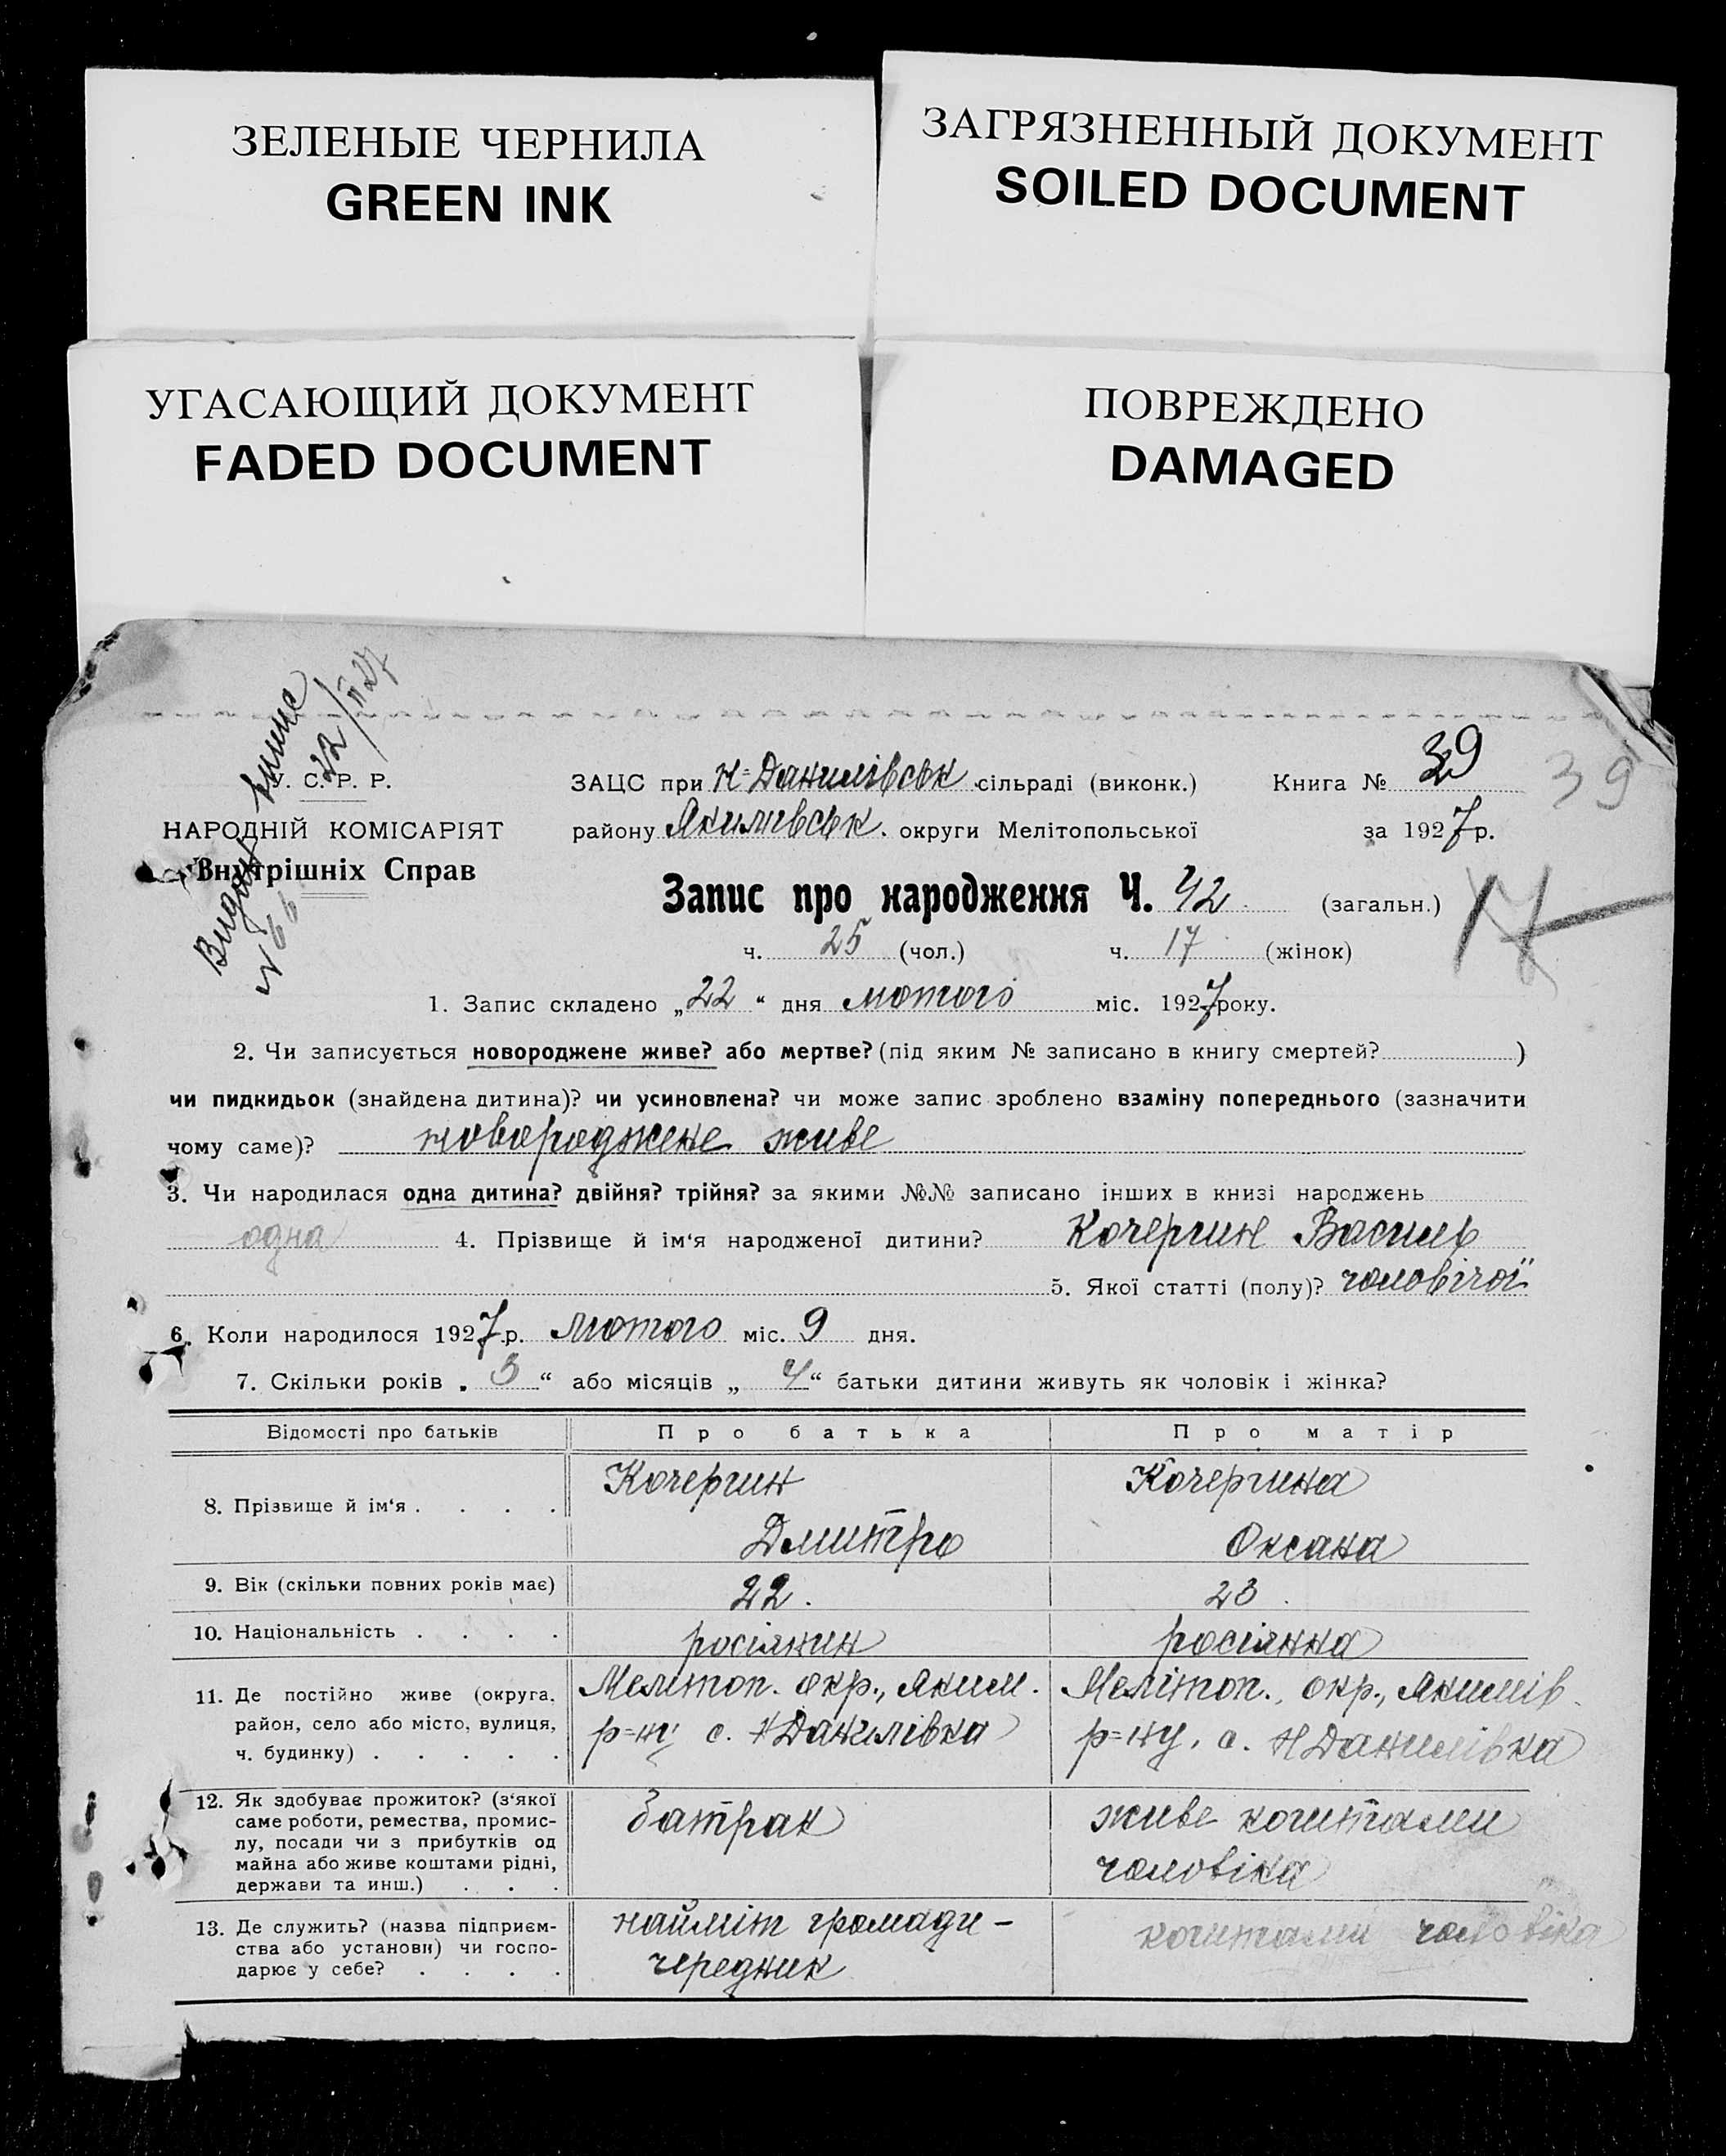 ЗЕЛЕНЫЕ ЧЕРНИЛА
GREEN INK
ЗАГРЯЗНЕННЫЙ ДОКУМЕНТ
SOILED DOCUMENT
УГАСАЮЩИЙ ДОКУМЕНТ
FADED DOCUMENT
ПОВРЕЖДЕНО
DAMAGED
Видан
22/II 27
№ 66
У. С. Р. Р.
НАРОДНІЙ КОМІСАРІЯТ
Внутрішніх Справ
ЗАЦС при Н-Данилівськ сільраді (виконк.) Книга № 39
39
району Якимівськ. округи Мелітопольської за 1927 р.
Запис про народження Ч. 42 (загальн.)
17
ч. 25 (чол.) ч. 17 (жінок)
1. Запис складено „22“ дня лютого міс. 1927 року.
2. Чи записується новороджене живе? або мертве? (під яким № записано в книгу смертей? )
чи пидкидьок (знайдена дитина)? чи усиновлена? чи може запис зроблено взаміну попереднього (зазначити
чому саме)? новороджене живе
3. Чи народилася одна дитина? двійня? трійня? за якими №№ записано інших в книзі народжень
одна 4. Прізвище й ім'я народженої дитини? Кочергин Василь
5. Якої статті (полу)? чоловічої
6. Коли народилося 1927 р. лютого міс. 9 дня.
7. Скільки років „3“ або місяців „4“ батьки дитини живуть як чоловік і жінка?
Відомості про батьків Про батька Про матір
8. Прізвище й ім'я . . . . Кочергин Дмитро Кочергина Оксана
9. Вік (скільки повних років має) 22. 23.
10. Національність . . . . росіянин росіянка
11. Де постійно живе (округа,
район, село або місто, вулиця,
ч. будинку) . . . . .
Мелітоп. окр., Яким.
р=ну с. НДанилівка
Мелітоп. окр., Якимів.
р=ну, с. НДанилівка
12. Як здобуває прожиток? (з'якої
саме роботи, ремества, промис-
лу, посади чи з прибутків од
майна або живе коштами рідні,
держави та инш.) . . .
батрак
живе коштами
чоловіка
13. Де служить? (назва підприєм-
ства або установи) чи госпо-
дарює у себе? . . . .
найміт громади -
чередник
коштами чоловіка